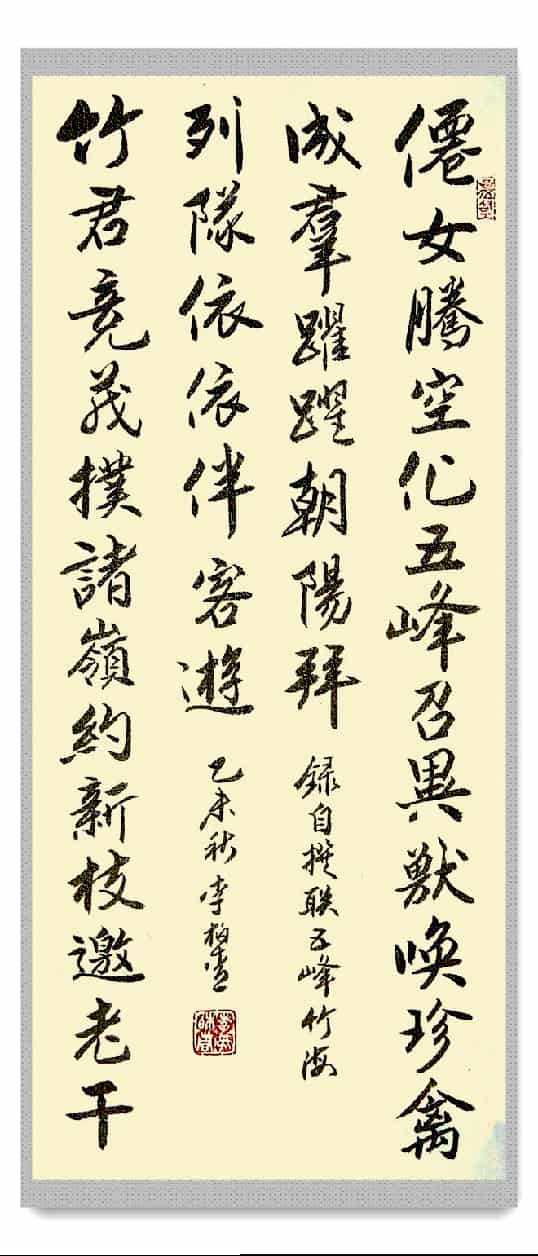 僊女騰空化五峰召異獸喚珍禽
成羣躍躍朝陽拜
錄自撰联五峰竹海
竹君竞茂撲諸嶺約新枝邀老干
列隊依依伴客遊
乙未秋李柏